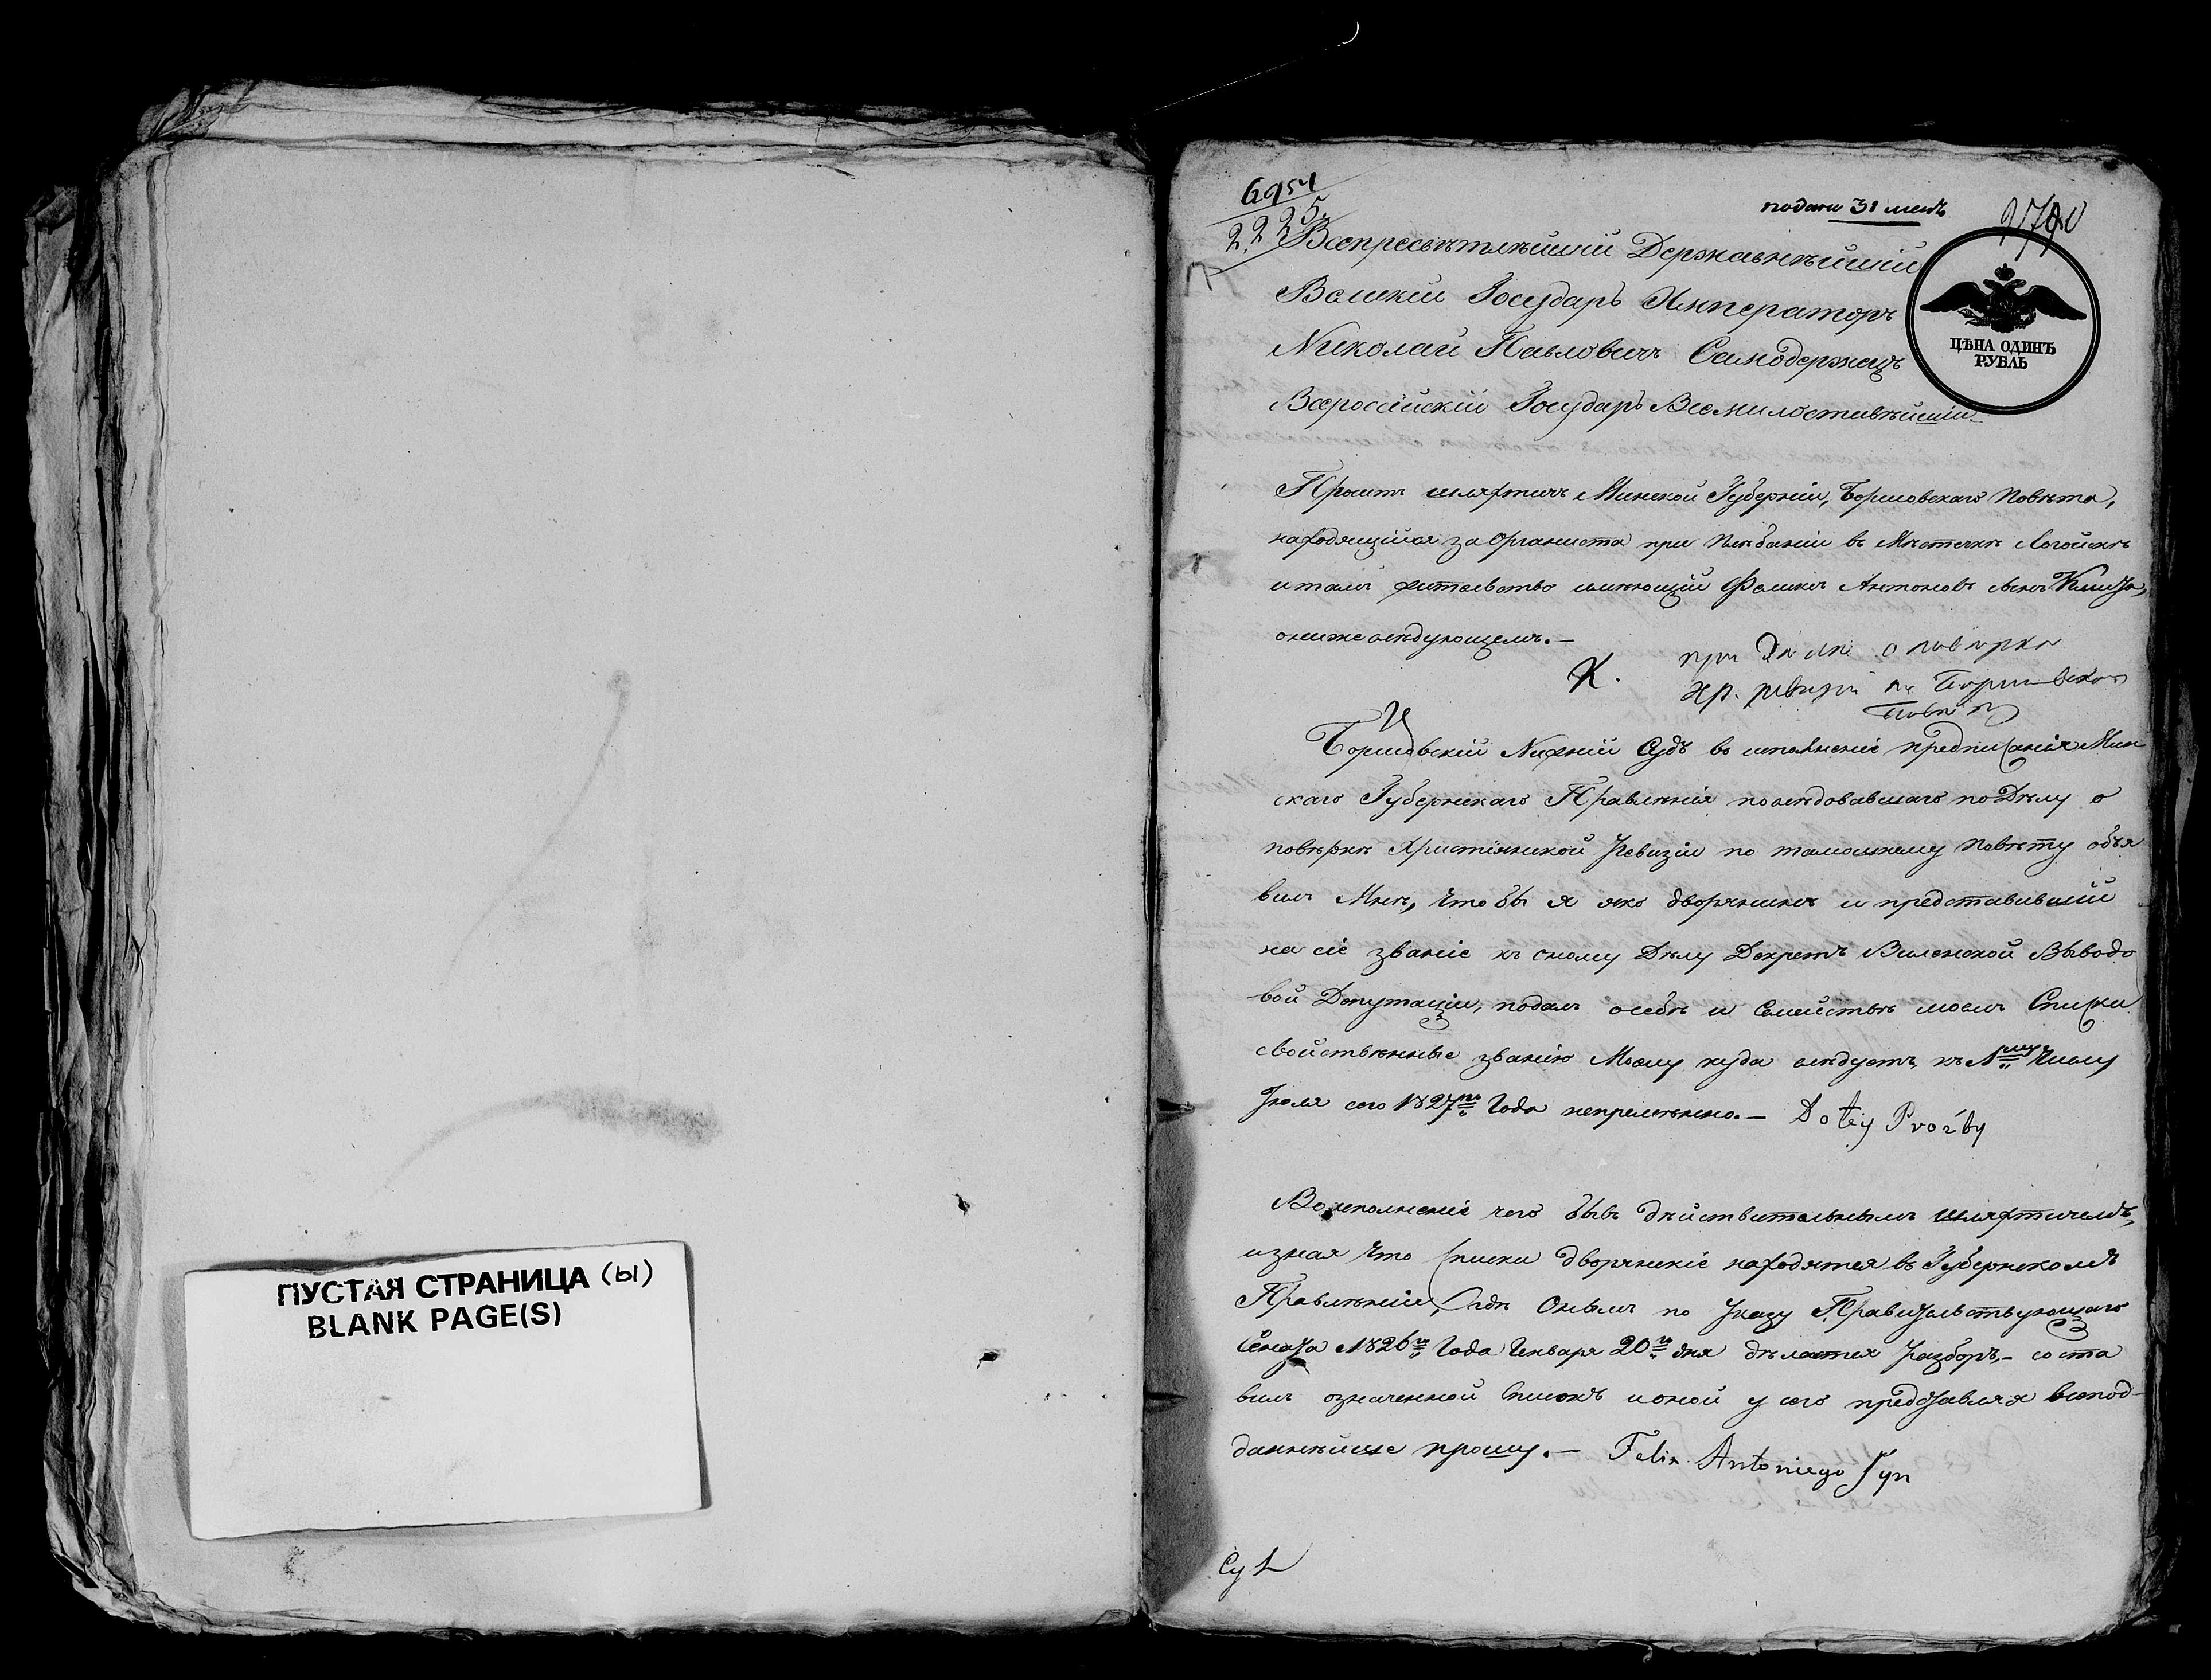 ПУСТАЯ СТРАНИЦА (Ы)
BLANK PAGE(S)
6951
2225.
подано 31 мая
Всепресвѣтлѣйшій Державнѣйшій
Великій Государь Императоръ
Николай Павловичъ Самодержецъ
Всероссійскій Государь Всемилостивѣйшій
ЦѢНА ОДИНЪ
РУБЛЬ
Проситъ шляхтичъ Минской Губерніи, Борисовскаго Повѣта,
находящійся за Органиста при Плебаніи въ Мѣстечкѣ Логойскѣ
и тамъ жительство имѣющій Феликсъ Антоновъ сынъ
о нижеслѣдующемъ.—
при Дѣлѣ о повѣрке
хр. ревизіи по Борисовском
Повѣту
Борисовскій Нижній Судъ во исполненіе предписанія Мин
скаго Губернскаго Правленія послѣдовавшаго по Дѣлу о
повѣркѣ Христіянской Ревизіи по тамошнему повѣту объя
вилъ Мнѣ, Что бы я яко дворянинъ и представившій
на сіе званіе къ оному Дѣлу Декретъ Виленской Выводо
вой Депутаціи, подалъ о себѣ и Семействѣ моемъ Списки
свойственные званію Моему куда слѣдуетъ, къ 1му Числу
Іюля сего 1827го Года непремѣнно.— Do tey Proźby
Во исполненіе чего бывъ дѣйствительнымъ шляхтичемъ,
и зная Что Списки дворянскіе находятся въ Губернскомъ
Правленіи, гдѣ Онымъ по Указу Правительствующаго
Сената 1826го Года Генваря 20го дня дѣлается разборъ,— соста
вилъ означенной Списокъ и оной у сего представляя всепод-
даннѣйше прошу.— Felix Antoniego Syn